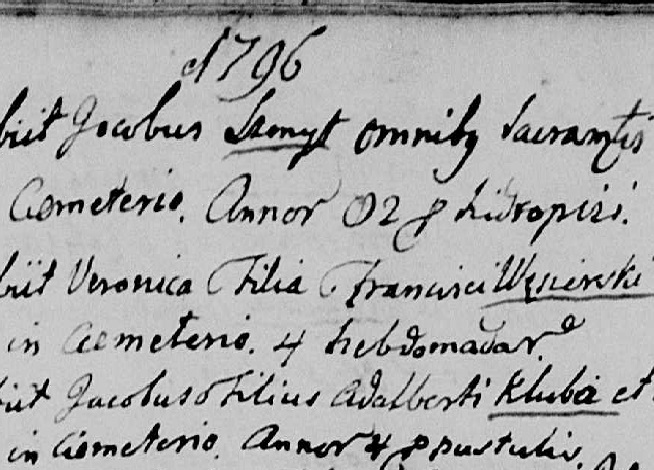 1796
biit Jacobus Szmyt omnib9 Sacramtis
Cemeterio. Annor 02 hidropisi.
biit Veronica Filia Francisci Węsierski
in Cemeterio. 4 hebdomadar.
biit Jacobus Filius Adalberti Kluba et
in Cemeterio. Annor 4 pustulis.